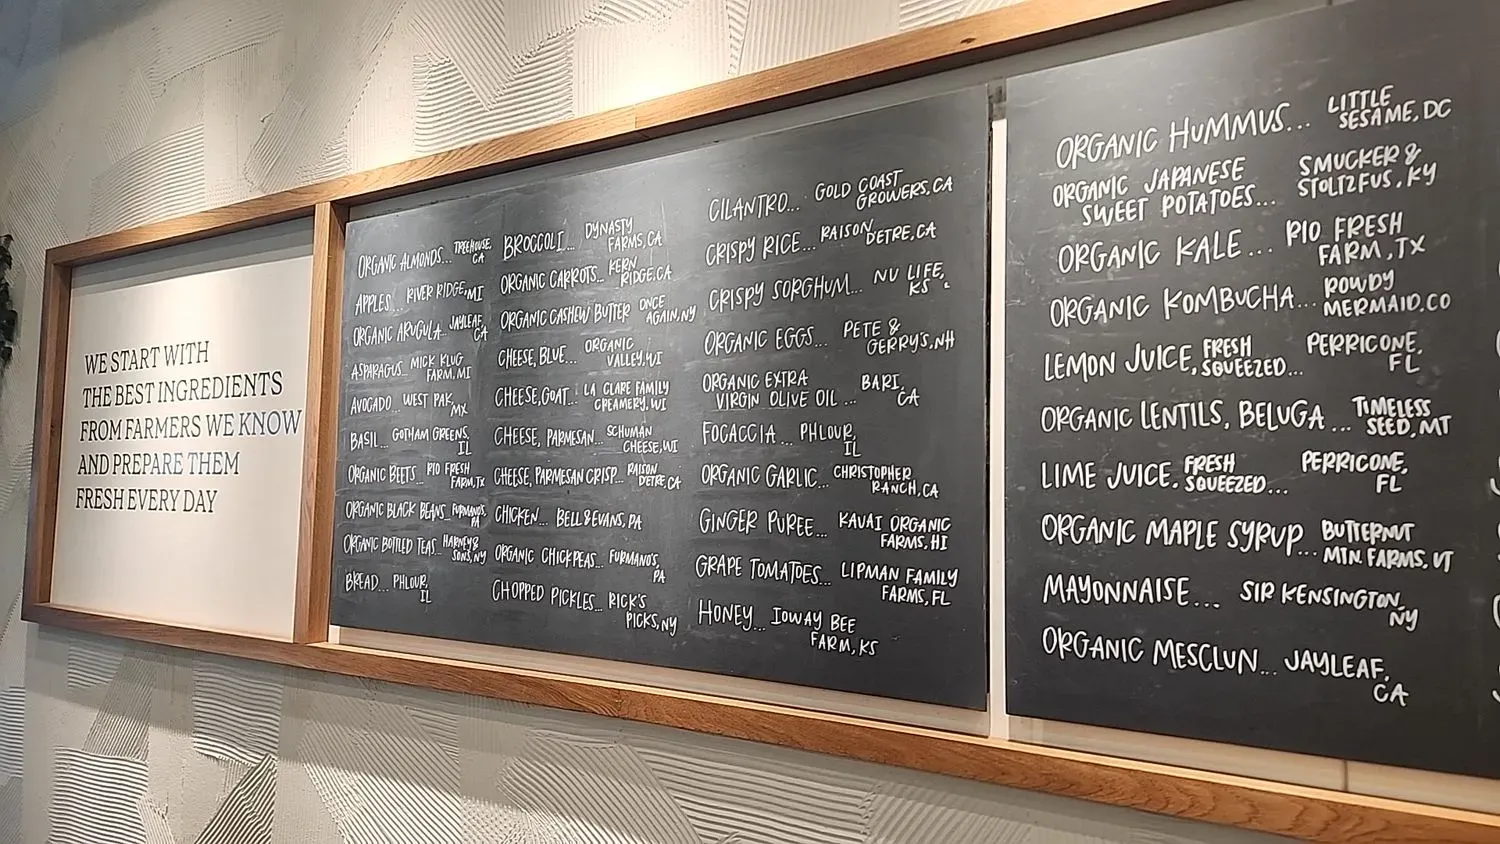 WE START WITH
THE BEST INGREDIENTS
FROM FARMERS WE KNOW
AND PREPARE THEM
FRESH EVERY DAY
ORGANIC ALMONDS... TREEHOUSE,
CA
APPLES... RIVER RIDGE, MI
ORGANIC ARUGULA... JAYLEAF,
CA
ASPARAGUS... MICK KLUG
FARM, MI
AVOCADO... WEST PAK,
MX
BASIL... GOTHAM GREENS,
IL
ORGANIC BEETS... RIO FRESH
FARM, TX
ORGANIC BLACK BEANS... FURMANO'S,
PA
ORGANIC BOTTLED TEAS... HARNEY &
SONS, NY
BREAD... PHLOUR,
IL
BROCCOLI... DYNASTY
FARMS, CA
ORGANIC CARROTS... KERN
RIDGE, CA
ORGANIC CASHEW BUTTER ONCE
AGAIN, NY
CHEESE, BLUE... ORGANIC
VALLEY, WI
CHEESE, GOAT... LA CLARE FAMILY
CREAMERY, WI
CHEESE, PARMESAN... SCHUMAN
CHEESE, WI
CHEESE, PARMESAN CRISP... RAISON
D'ETRE, CA
CHICKEN... BELL & EVANS, PA
ORGANIC CHICKPEAS... FURMANO'S,
PA
CHOPPED PICKLES... RICK'S
PICKS, NY
CILANTRO... GOLD COAST
GROWERS, CA
CRISPY RICE... RAISON
D'ETRE, CA
CRISPY SORGHUM... NU LIFE,
KS
ORGANIC EGGS... PETE &
GERRY'S, NH
ORGANIC EXTRA
VIRGIN OLIVE OIL... BARI,
CA
FOCACCIA... PHLOUR,
IL
ORGANIC GARLIC... CHRISTOPHER
RANCH, CA
GINGER PUREE... KAUAI ORGANIC
FARMS, HI
GRAPE TOMATOES... LIPMAN FAMILY
FARMS, FL
HONEY... IOWAY BEE
FARM, KS
ORGANIC HUMMUS... LITTLE
SESAME, DC
ORGANIC JAPANESE
SWEET POTATOES... SMUCKER &
STOLTZFUS, KY
ORGANIC KALE... RIO FRESH
FARM, TX
ORGANIC KOMBUCHA... ROWDY
MERMAID, CO
LEMON JUICE, FRESH
SQUEEZED... PERRICONE,
FL
ORGANIC LENTILS, BELUGA... TIMELESS
SEED, MT
LIME JUICE, FRESH
SQUEEZED... PERRICONE,
FL
ORGANIC MAPLE SYRUP... BUTTERNUT
MTN. FARMS, VT
MAYONNAISE... SIR KENSINGTON,
NY
ORGANIC MESCLUN... JAYLEAF,
CA